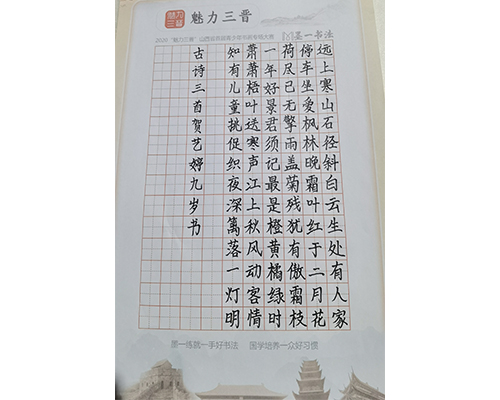 魅力
三晋
魅力三晋
墨一书法
远上寒山石径斜白云生处有人家
停车坐爱枫林晚霜叶红于二月花
荷尽已无擎雨盖菊残犹有傲霜枝
一年好景君须记最是橙黄橘绿时
萧萧梧叶送寒声江上秋风动客情
知有儿童挑促织夜深篱落一灯明
古诗三首贺艺婷九岁书
墨一练就一手好书法 国学培养一众好习惯